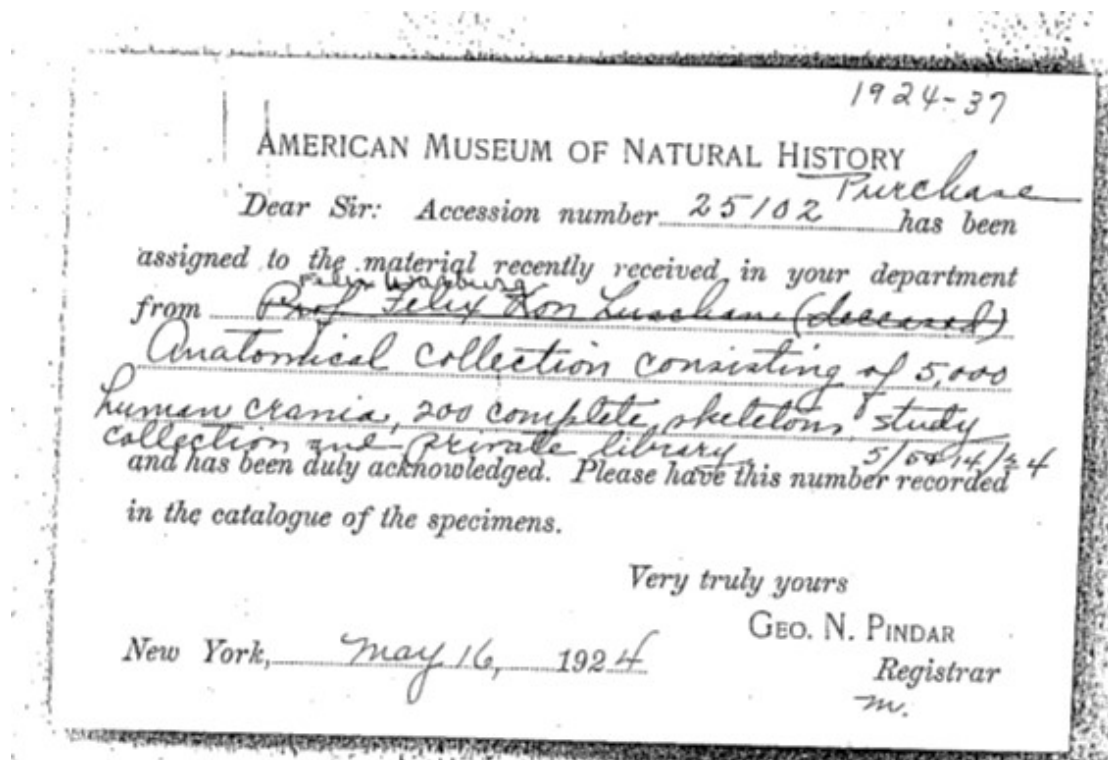 1924-37
AMERICAN MUSEUM OF NATURAL HISTORY
Purchase
Dear Sir: Accession number 25102 has been
assigned to the material recently received in your department
Felix Warburg
from Prof. Felix Von Luschan (deceased)
Anatomical collection consisting of 5,000
human crania, 200 complete skeletons, study
collection and private library.
and has been duly acknowledged. Please have this number recorded
in the catalogue of the specimens.
Very truly yours
GEO. N. PINDAR
New York, May 16, 1924
Registrar
m.